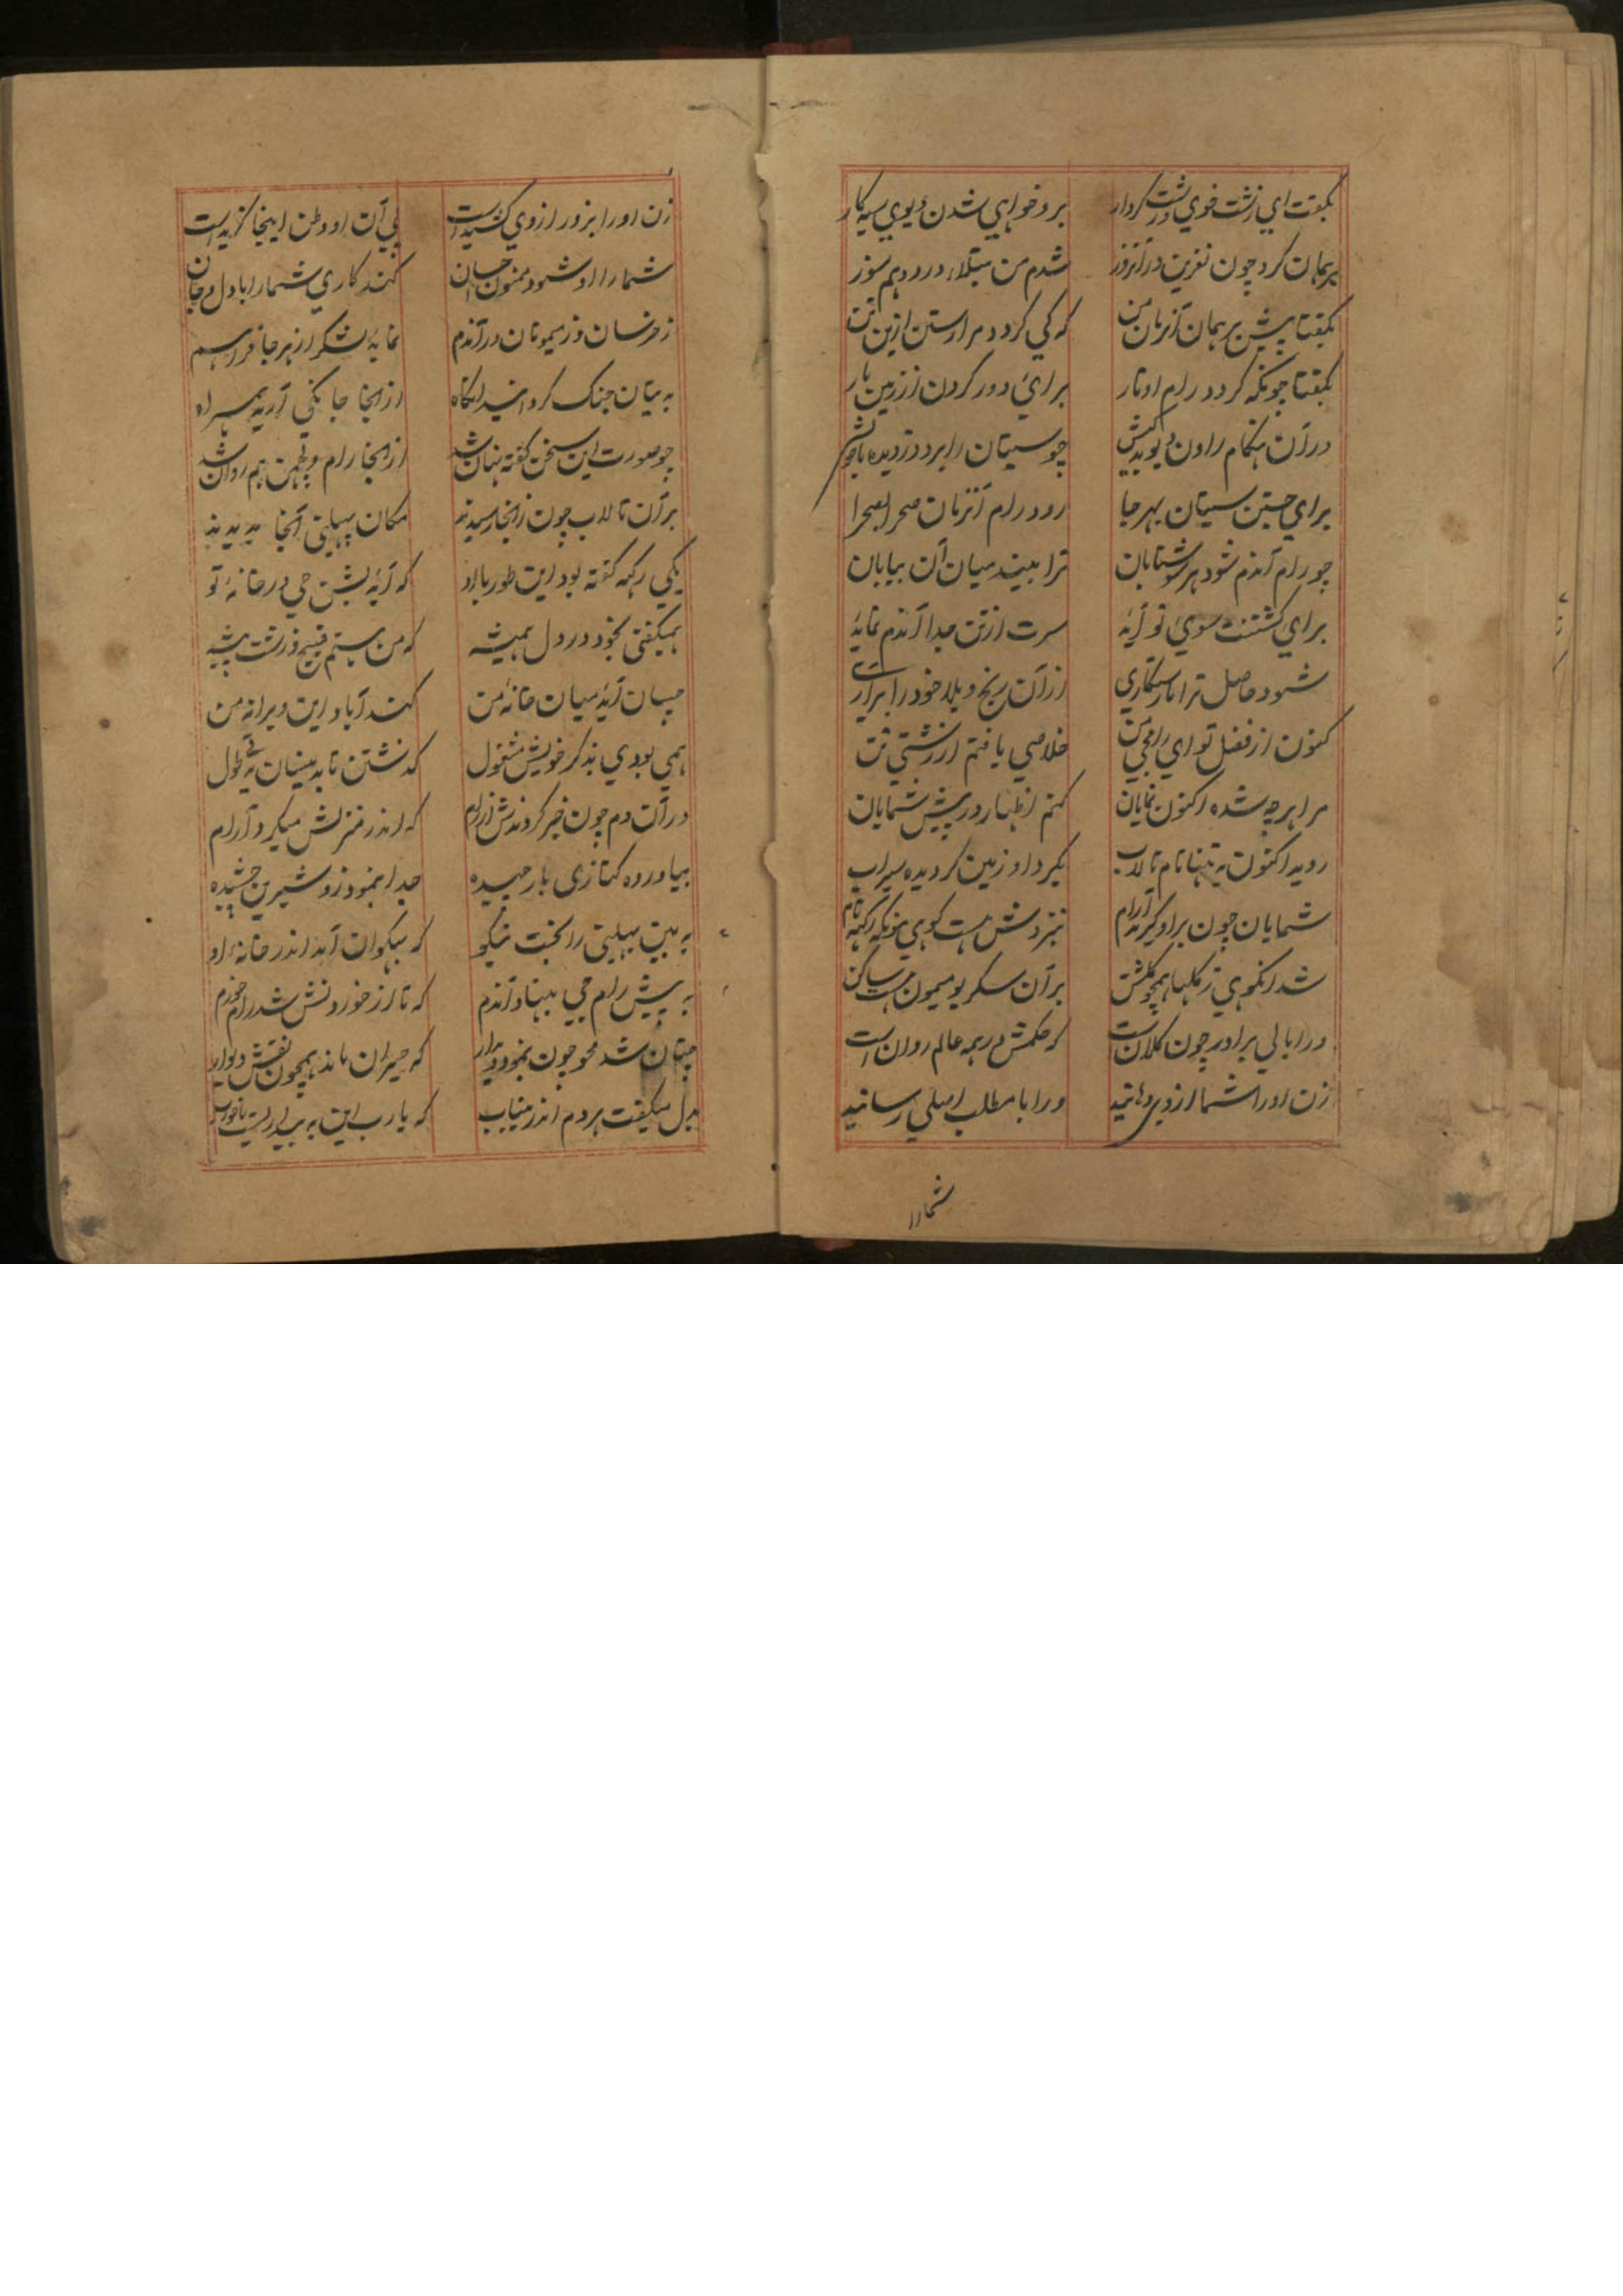 بگفت ای زشت خوی و زشت کردار برو خواهی شدن دیوی سیه کار
برهمان کرد چون نفرین در آنروز شدم من مبتلا در درد هم سوز
بگفتا پیش برهمان آنزمان من که کی گردد مرا رستن ازین تن
بگفتا چونکه گردد رام اوتار برای دور کردن از زمین بار
در آن هنگام راون دیو بدکیش چو سیتان را برد دزدیده با خویش
برای جستن سیتان بهر جا رود رام آنزمان صحرا بصحرا
چو رام آندم شود هر سو شتابان ترا بیند میان آن بیابان
برای کشتنت سوی تو آیه سرت از تن جدا آندم نمایه
شود حاصل ترا تا رستگاری از آن رنج و بلا خود را براری
کنون از فضل تو ای رامجی من خلاصی یافتم از زشتی تن
مرا هرچه شده اکنون نمایان کنم اظهار در پیش شمایان
روید اکنون به پنپا نام تالاب بگیرد او زمین گردیده سیراب
شمایان چون براو گیرید آرام بنزدش هست کوهی مونکه رکهه نام
شد انکوهی ز گلها همچو گلشن بر آن سکریو میمون هست ساکن
ورا بالی برادر چون کلان است که حکمش در همه عالم روان است
زن اورا شما از وی دهانید ورا با مطلب اصلی رسانید
شمارا
زن اورا بزور از وی کشید است پی آن او وطن اینجا گزید است
شمارا او شود ممنون احسان کند کاری شمارا با دل و جان
ز خرسان و ز میمونان در آندم نمایه لشکر از هر جا فراهم
به بیتان جنگ کرده انید انگاه از انجا جانکی آریه همراه
چو صورت این سخن گفته نهان شد از انجا رام و لچهمن هم روان شد
بر آن تالاب چون زانجا رسیدند مکان بهیلنی آنجا بدیدند
یکی رکهه گفته بود این طور با او که آیه بشن جی در خانهٔ تو
همیگفتی بخود در دل همیشه که من هستم قبیح و زشت پیشه
چسان آیه میان خانهٔ من کند آباد این ویرانه من
همی بودی بذکر خویش مشغول
در آن دم چون خبر کردندش از رام که اندر منزلش میکرد آرام
بیاورده کنازی بار چیده جدا بنمود زو شیرین چشیده
به بین بهیلنی را بخت نیکو که بهکوان آید اندر خانه او
به پیش رام جی بنهاد آندم که تا از خوردنش شد رام خورم
چنان شد محو چون بنمود دیدار که حیران ماند همچون نقش دیوار
بدل میگفت هر دم اندر بیتاب که یارب این به بیداریست یا خواب